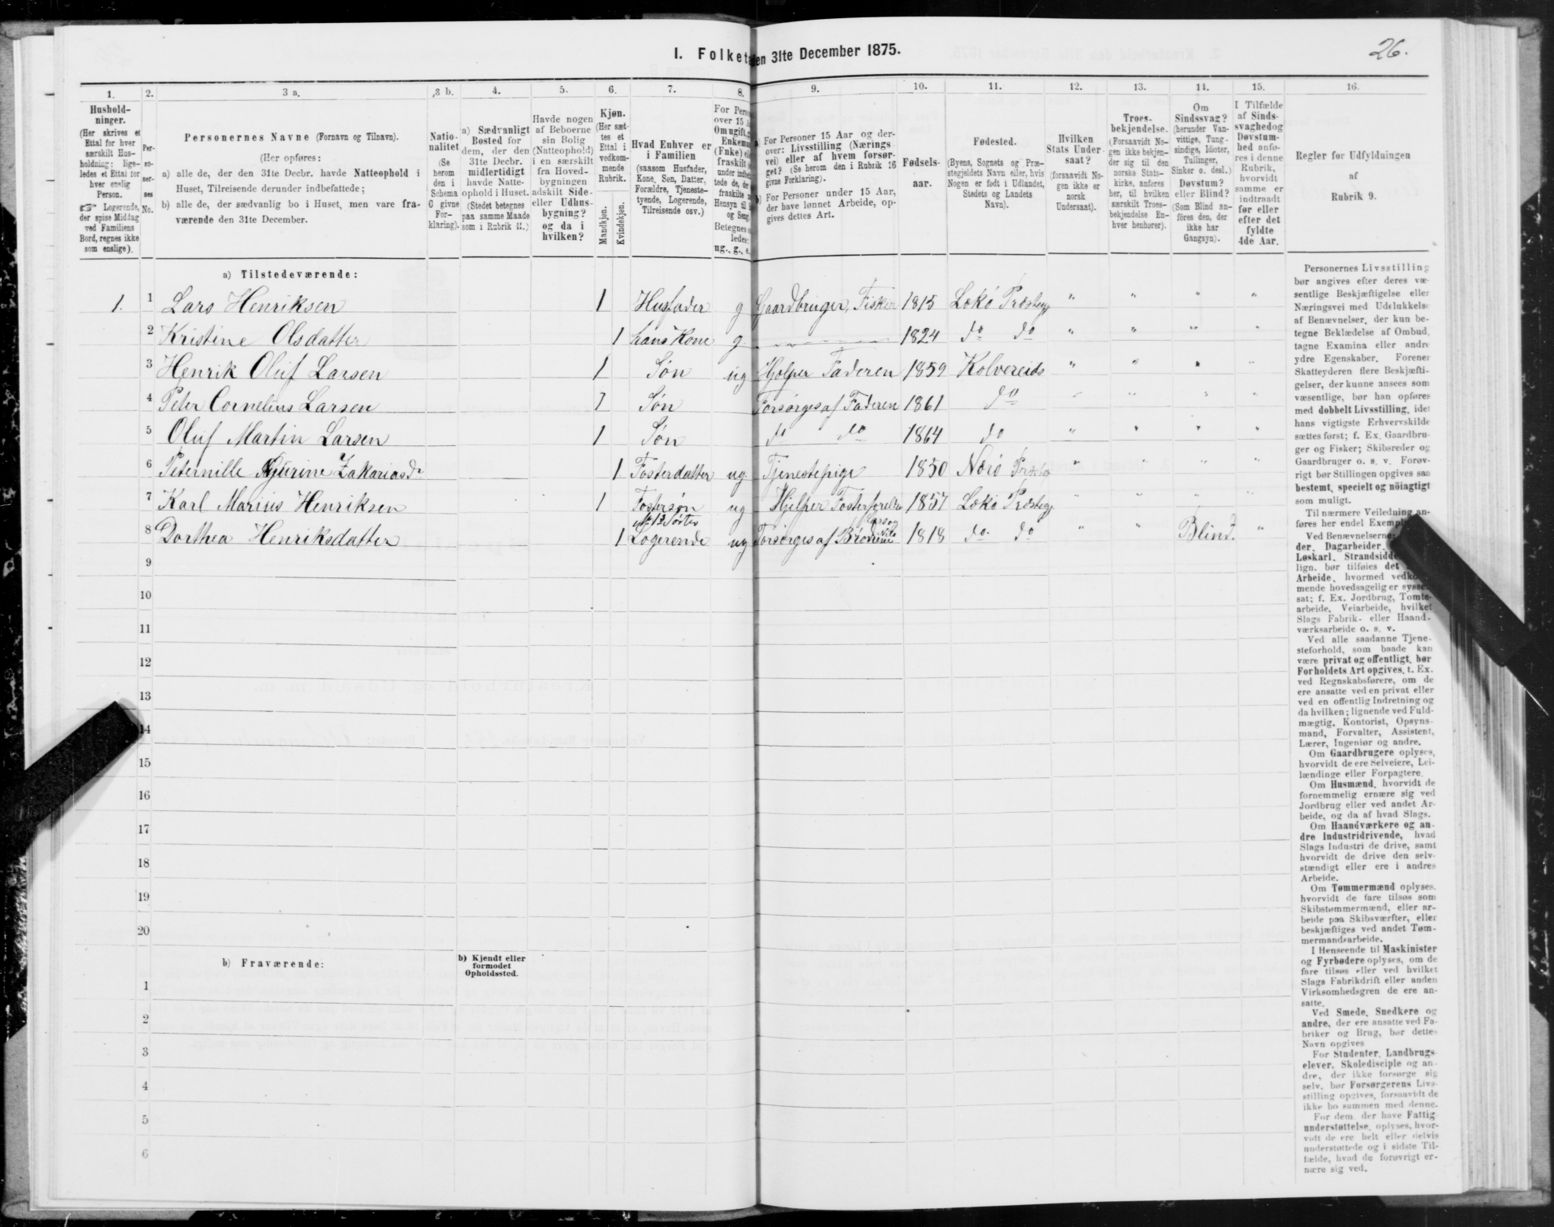 26.
I. Folket en 31te December 1875.
1. 2. 3 a. 3 b. 4. 5. 6. 7. 8. 9. 10. 11. 12. 13. 14. 15. 16.
Hushold-
ninger.
(Her skrives et
Ettal for hver
særskilt Hus-
holdning; lige-
ledes et Ettal for
hver enslig
Person.
☞ Logerende,
der spise Middag
ved Familiens
Bord, regnes ikke
som enslige).
Per-
so-
ner-
nes
No.
Personernes Navne (Fornavn og Tilnavn).
(Her opføres:
a) alle de, der den 31te Decbr. havde Natteophold i
Huset, Tilreisende derunder indbefattede;
b) alle de, der sædvanlig bo i Huset, men vare fra-
værende den 31te December.
Natio-
nalitet
(Se
herom
den i
Schema
C givne
For-
klaring).
a) Sædvanligt
Bosted for
dem, der den
31te Decbr.
midlertidigt
havde Natte-
ophold i Huset.
(Stedet betegnes
paa samme Maade
som i Rubrik 11.)
Havde nogen
af Beboerne
sin Bolig
(Natteophold)
i en særskilt
fra Hoved-
bygningen
adskilt Side-
eller Udhus-
bygning?
og da i
hvilken?
Kjøn.
(Her sæt-
tes et
Ettal i
vedkom-
mende
Rubrik.
Mandkjøn.
Kvindekjøn.
Hvad Enhver er
i Familien
(saasom Husfader,
Kone, Søn, Datter,
Forældre, Tjeneste-
tyende, Logerende,
Tilreisende osv.)
For Pers
over 15
Om ugift, g
Enkem
(Enke) el
fraskilt
Betegnes
ledes:
ug., g., e.
For Personer 15 Aar og der-
over: Livsstilling (Nærings
vei) eller af hvem forsør-
get? (Se herom den i Rubrik 16
givne Forklaring).
For Personer under 15 Aar,
der have lønnet Arbeide, op-
gives dettes Art.
Fødsels-
aar.
Fødested.
(Byens, Sognets og Præ-
stegjeldets Navn eller, hvis
Nogen er født i Udlandet,
Stedets og Landets
Navn).
Hvilken
Stats Under-
saat?
(forsaavidt No-
gen ikke er
norsk
Undersaat).
Troes-
bekjendelse.
(Forsaavidt No-
gen ikke bekjen-
der sig til den
norske Stats-
kirke, anføres
her, til hvilken
særskilt Troes-
bekjendelse En-
hver henhører).
Om
Sindssvag?
(herunder Van-
vittige, Tung-
sindige, Idioter,
Tullinger,
Sinker o. desl.)
Døvstum?
eller Blind?
(Som Blind an-
føres den, der
ikke har
Gangsyn).
I Tilfælde
af Sinds-
svaghed og
Døvstum-
hed anfø-
res i denne
Rubrik,
hvorvidt
samme er
indtraadt
før eller
efter det
fyldte
4de Aar.
Regler for Udfyldningen
af
Rubrik 9.
a) Tilstedeværende:
1. 1 Lars Henriksen 1 Husfader g Gaardbruger, Fisker 1815 Lekö Præstegj " " " "
2 Kristine Olsdatter 1 hans Kone g 1824 do do " " " "
3 Henrik Oluf Larsen 1 Søn ug Hjelper Faderen 1859 Kolvereids " " " "
4 Peter Cornelius Larsen 1 Søn Forsørges af Faderen 1861 do " " " "
5 Oluf Martin Larsen 1 Søn do do 1864 do " " " "
6 Peternille Zakariasdr 1 Fosterdatter ug Tjenestepige 1850 Nærö Præstegj " " " "
7 Karl Marius Henriksen 1 Fostersøn ug Hjelper 1857 Lekö Præstegj " " " "
8 Dorthea Henriksdatter 1 Logerende ug Forsørges af 1818 do do " " Blind. "
9
10
11
12
13
14
15
16
17
18
19
20
b) Fraværende:
b) Kjendt eller
formodet
Opholdssted.
1
2
3
4
5
6
Personernes Livsstilling
bør angives efter deres væ-
sentlige Beskjæftigelse eller
Næringsvei med Udelukkelse
af Benævnelser, der kun be-
tegne Beklædelse af Ombud,
tagne Examina eller andre
ydre Egenskaber. Forener
Skatteyderen flere Beskjæfti-
gelser, der kunne ansees som
væsentlige, bør han opføres
med dobbelt Livsstilling, idet
hans vigtigste Erhvervskilde
sættes først; f. Ex. Gaardbru-
ger og Fisker; Skibsreder og
Gaardbruger o. s. v. Forøv-
rigt bør Stillingen opgives saa
bestemt, specielt og nöiagtigt
som muligt.
Til nærmere Veiledning an-
føres her endel Exemp
Ved Benævnelserne
der, Dagarbeider,
Løskarl, Strandsidde
lign. bør tilføies det
Arbeide, hvormed vedkom-
mende hovedsagelig er syssel-
sat; f. Ex. Jordbrug, Tomte-
arbeide, Veiarbeide, hvilket
Slags Fabrik- eller Haand-
værksarbeide o. s. v.
Ved alle saadanne Tjene-
steforhold, som baade kan
være privat og offentligt, bør
Forholdets Art opgives, t. Ex.
ved Regnskabsførere, om de
ere ansatte ved en privat eller
ved en offentlig Indretning og
da hvilken; lignende ved Fuld-
mægtig, Kontorist, Opsyns-
mand, Forvalter, Assistent,
Lærer, Ingeniør og andre.
Om Gaardbrugere oplyses,
hvorvidt de ere Selveiere, Lei-
lændinge eller Forpagtere.
Om Husmænd, hvorvidt de
fornemmelig ernære sig ved
Jordbrug eller ved andet Ar-
beide, og da af hvad Slags.
Om Haandværkere og an-
dre Industridrivende, hvad
Slags Industri de drive, samt
hvorvidt de drive den selv-
stændigt eller ere i andres
Arbeide.
Om Tømmermænd oplyses,
hvorvidt de fare tilsøs som
Skibstømmermænd, eller ar-
beide paa Skibsværfter, eller
beskjæftiges ved andet Tøm-
mermandsarbeide.
I Henseende til Maskinister
og Fyrbødere oplyses, om de
fare tilsøs eller ved hvilket
Slags Fabrikdrift eller anden
Virksomhedsgren de ere an-
satte.
Ved Smede, Snedkere og
andre, der ere ansatte ved Fa-
briker og Brug, bør dettes
Navn opgives
For Studenter, Landbrugs-
elever, Skoledisciple og an-
dre, der ikke forsørge sig
selv, bør Forsørgerens Livs-
stilling opgives, forsaavidt de
ikke bo sammen med denne.
For dem, der have Fattig-
understøttelse, oplyses, hvor-
vidt de ere helt eller delvis
understøttede og i sidste Til-
fælde, hvad de forøvrigt er-
nære sig ved.